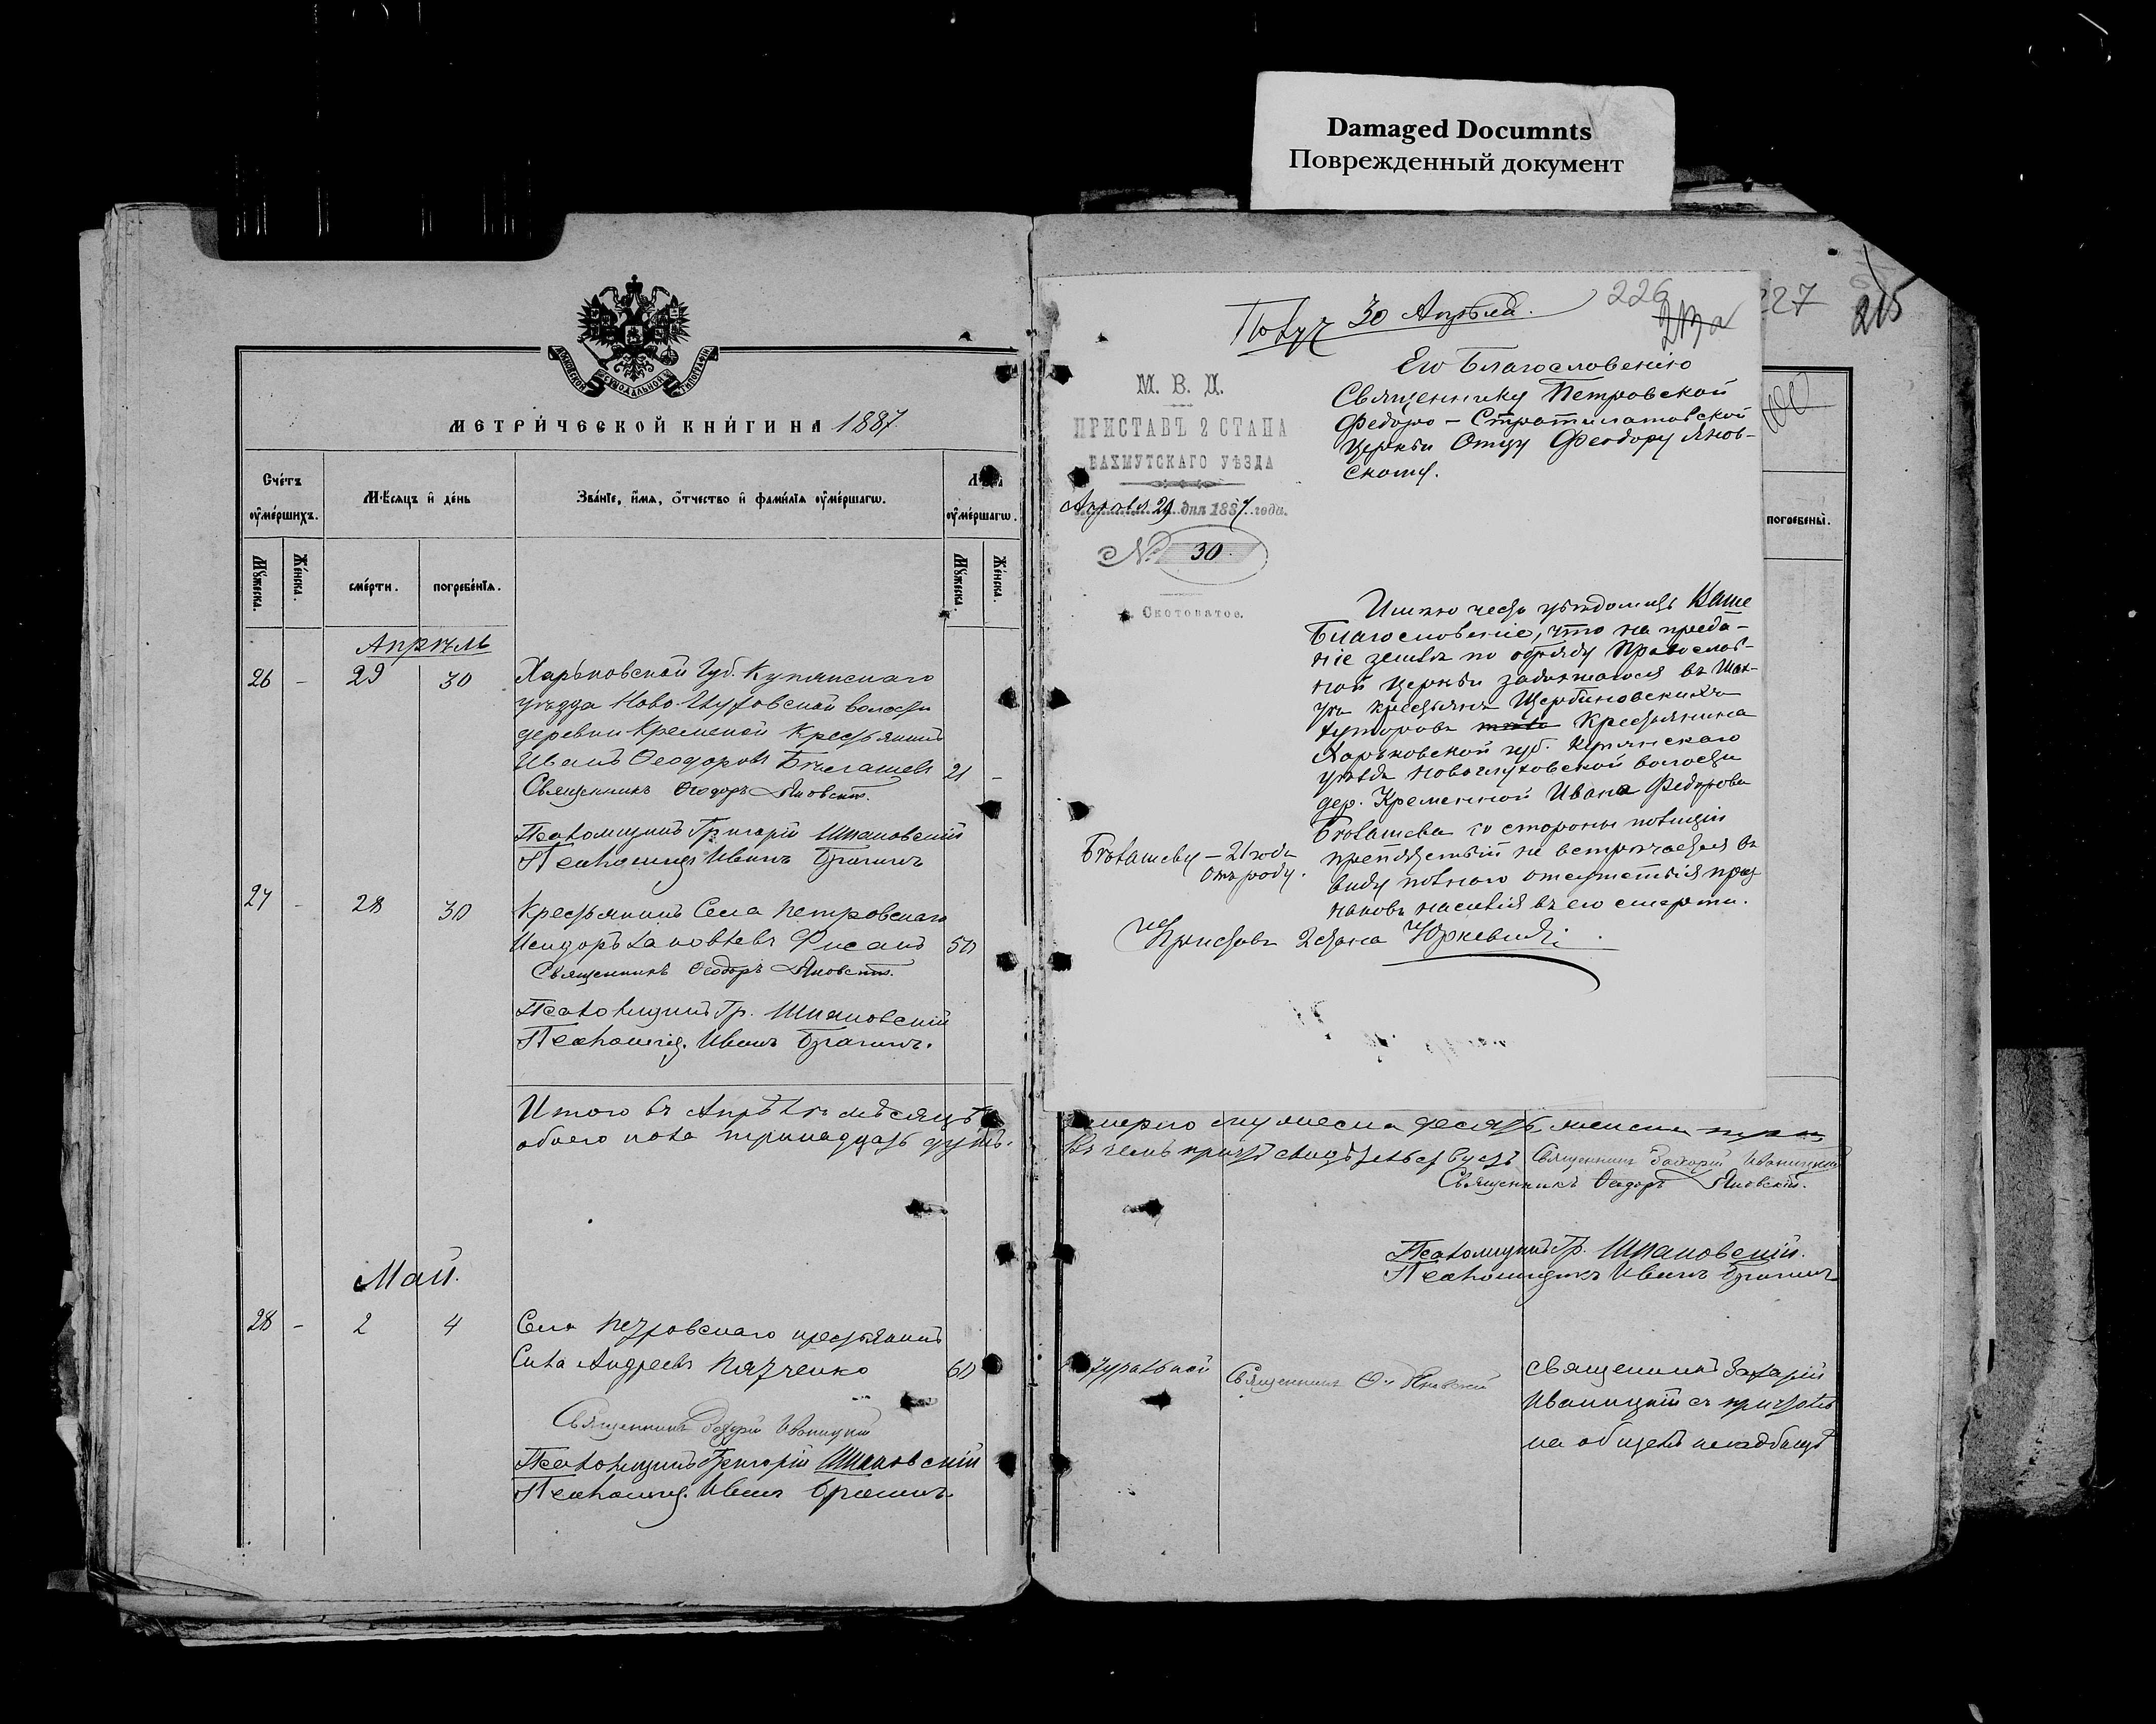 Damaged Documnts
Поврежденный документ
МОСКОВСКОЙ СѴНОДАЛЬНОЙ ТИПОГРАФІИ
МЕТРИЧЕСКОЙ КНИГИ НА 1887
Счетъ оумершихъ.
Мѣсяцъ и день
Званіе, имя, отчество и фамилія оумершагѡ.
Лѣта оумершагѡ.
Мужеска.
Женска.
смерти.
погребенія.
Мужеска.
Женска.
Апрѣль
26 - 29 30 Харьковской Губ. Купянскаго
уѣзда Ново-Глуховской волости
деревни Кременой Крестьянинъ
Иванъ Ѳеодоровъ Бѣлашевъ 21 -
Священникъ Ѳеодоръ Яновскій.
Псаломщикъ Григорій Шпановскій
Псаломщ. Иванъ Брагинъ
27 - 28 30 Крестьянинъ Села Петровскаго
Исидоръ Іаковлевъ Фисанъ 50
Священникъ Ѳеодоръ Яновскій.
Псаломщикъ Гр. Шпановскій
Псаломщ. Иванъ Брагинъ.
Итого въ Апрѣлѣ мѣсяцѣ
обоего пола тринадцать душъ.
Май.
28 - 2 4 Села Петровскаго крестьянинъ
Сила Андреевъ Пятченко 60
Священникъ Захарій Иваницкій
Псаломщикъ Григорій Шпановскій
Псаломщ. Иванъ Брагинъ
227
215
226
213а
Получ 30 Апрѣля.
М. В. Д.
ПРИСТАВЪ 2 СТАНА
БАХМУТСКАГО УѢЗДА
Апрѣля 29 дня 1887 года.
№ 30
Скотоватое.
Его Благословенію
Священнику Петровской
Федоро-Стратилатовской
Церкви Отцу Феодору Янов-
скому.
Имѣю честь увѣдомить Ваше
Благословеніе, что на преда-
ніе землѣ по обряду Православ-
ной церкви задавшагося въ Шах-
тѣ крестьянъ Щербиновскихъ
хуторовъ Крестьянина
Харьковской губ. Купянскаго
уѣзда Новоглуховской волости
дер. Кременной Ивана Федорова
Бѣлашева со стороны полиціи
препятствій не встрѣчается въ
виду полного отсутствія приз-
наковъ насилія въ его смерти.
Бѣлашеву - 21 годъ
отъ роду.
Приставъ 2 стана Юркевичъ
погребены.
умерло мужеска десять, женска три
Въ чемъ причтъ свидѣтельствуетъ Священникъ Захарій Иваницкій
Священникъ Ѳеодоръ Яновскій.
Псаломщикъ Гр. Шпановскій.
Псаломщикъ Иванъ Брагинъ
натуральной
Священникъ Ѳ. Яновскій
Священникъ Захарій
Иваницкій съ причтомъ
на общемъ кладбищѣ